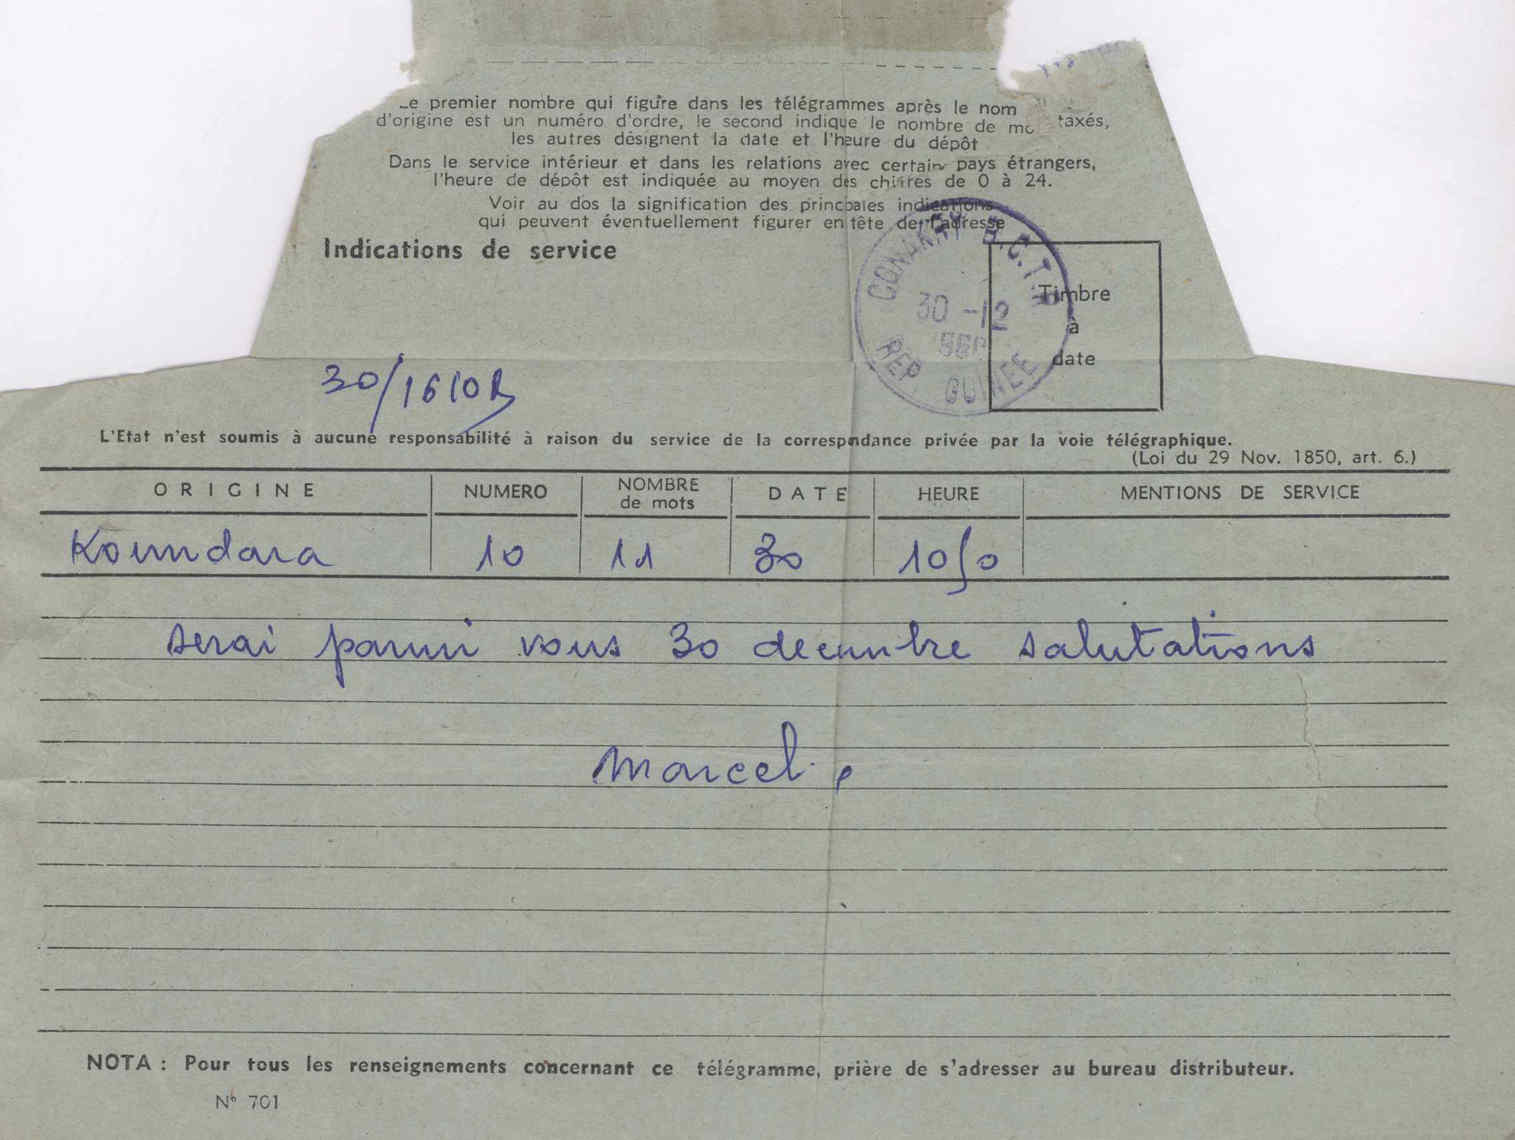 premier nombre qui figure dans les télégrammes après le nom
d'origine est un numéro d'ordre, le second indique le nombre de taxés,
les autres désignent la date et l'heure du dépôt
Dans le service intérieur et dans les relations avec certain pays étrangers,
l'heure de dépôt est indiquée au moyen des chiffres de 0 à 24.
Voir au dos la signification des principales indications
qui peuvent éventuellement figurer en tête de l'adresse
Indications de service
CONAKRY B.C.T.R
30 -12
REP GUINEE
Timbre
à
date
30/1610
L'Etat n'est soumis à aucune responsabilité à raison du service de la correspondance privée par la voie télégraphique.
(Loi du 29 Nov. 1850, art. 6.)
ORIGINE NUMERO NOMBRE de mots DATE HEURE MENTIONS DE SERVICE
Koundara 10 11 30 1050
serai parmi vous 30 decembre salutations
Marcel.
NOTA : Pour tous les renseignements concernant ce télégramme, prière de s'adresser au bureau distributeur.
N° 701